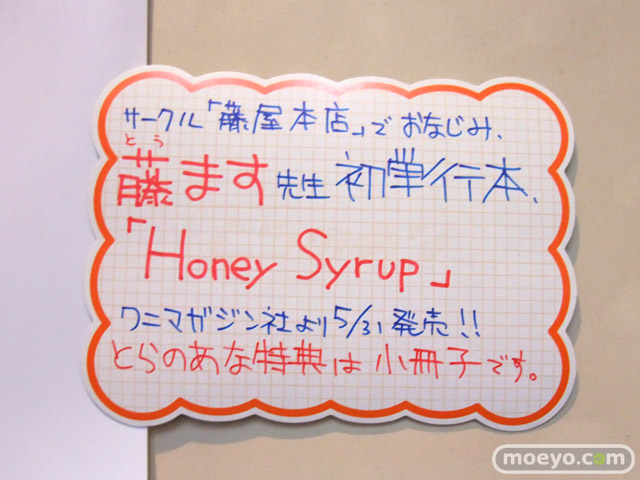 サークル「藤屋本店」でおなじみ、
とう
藤ます先生 初単行本、
「Honey Syrup」
ワニマガジン社より5/31発売!!
とらのあな特典は小冊子です。
moeyo.com